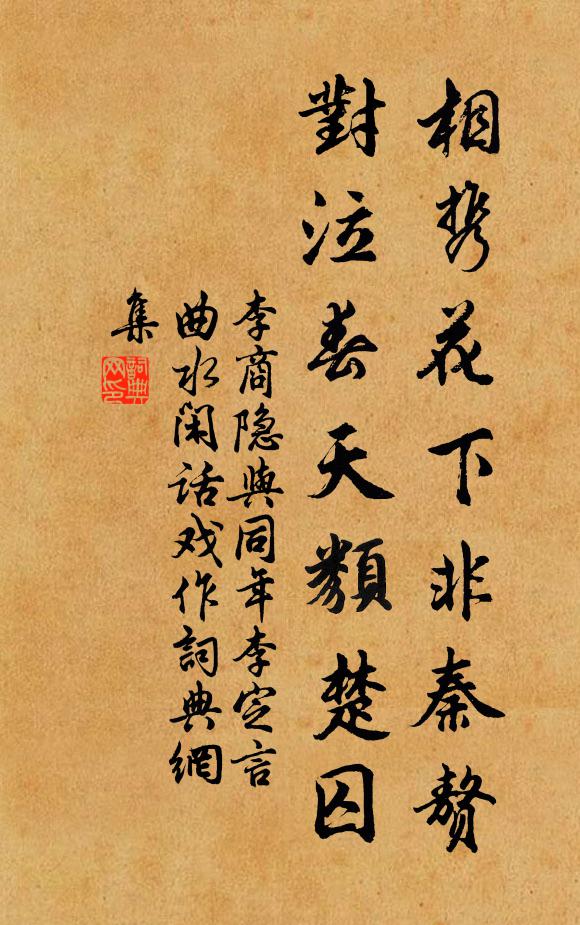 相携花下非秦贅
對泣春天類楚囚
李商隐與同年李定言
曲水闲話戏作詞典網
集
詞典
网印